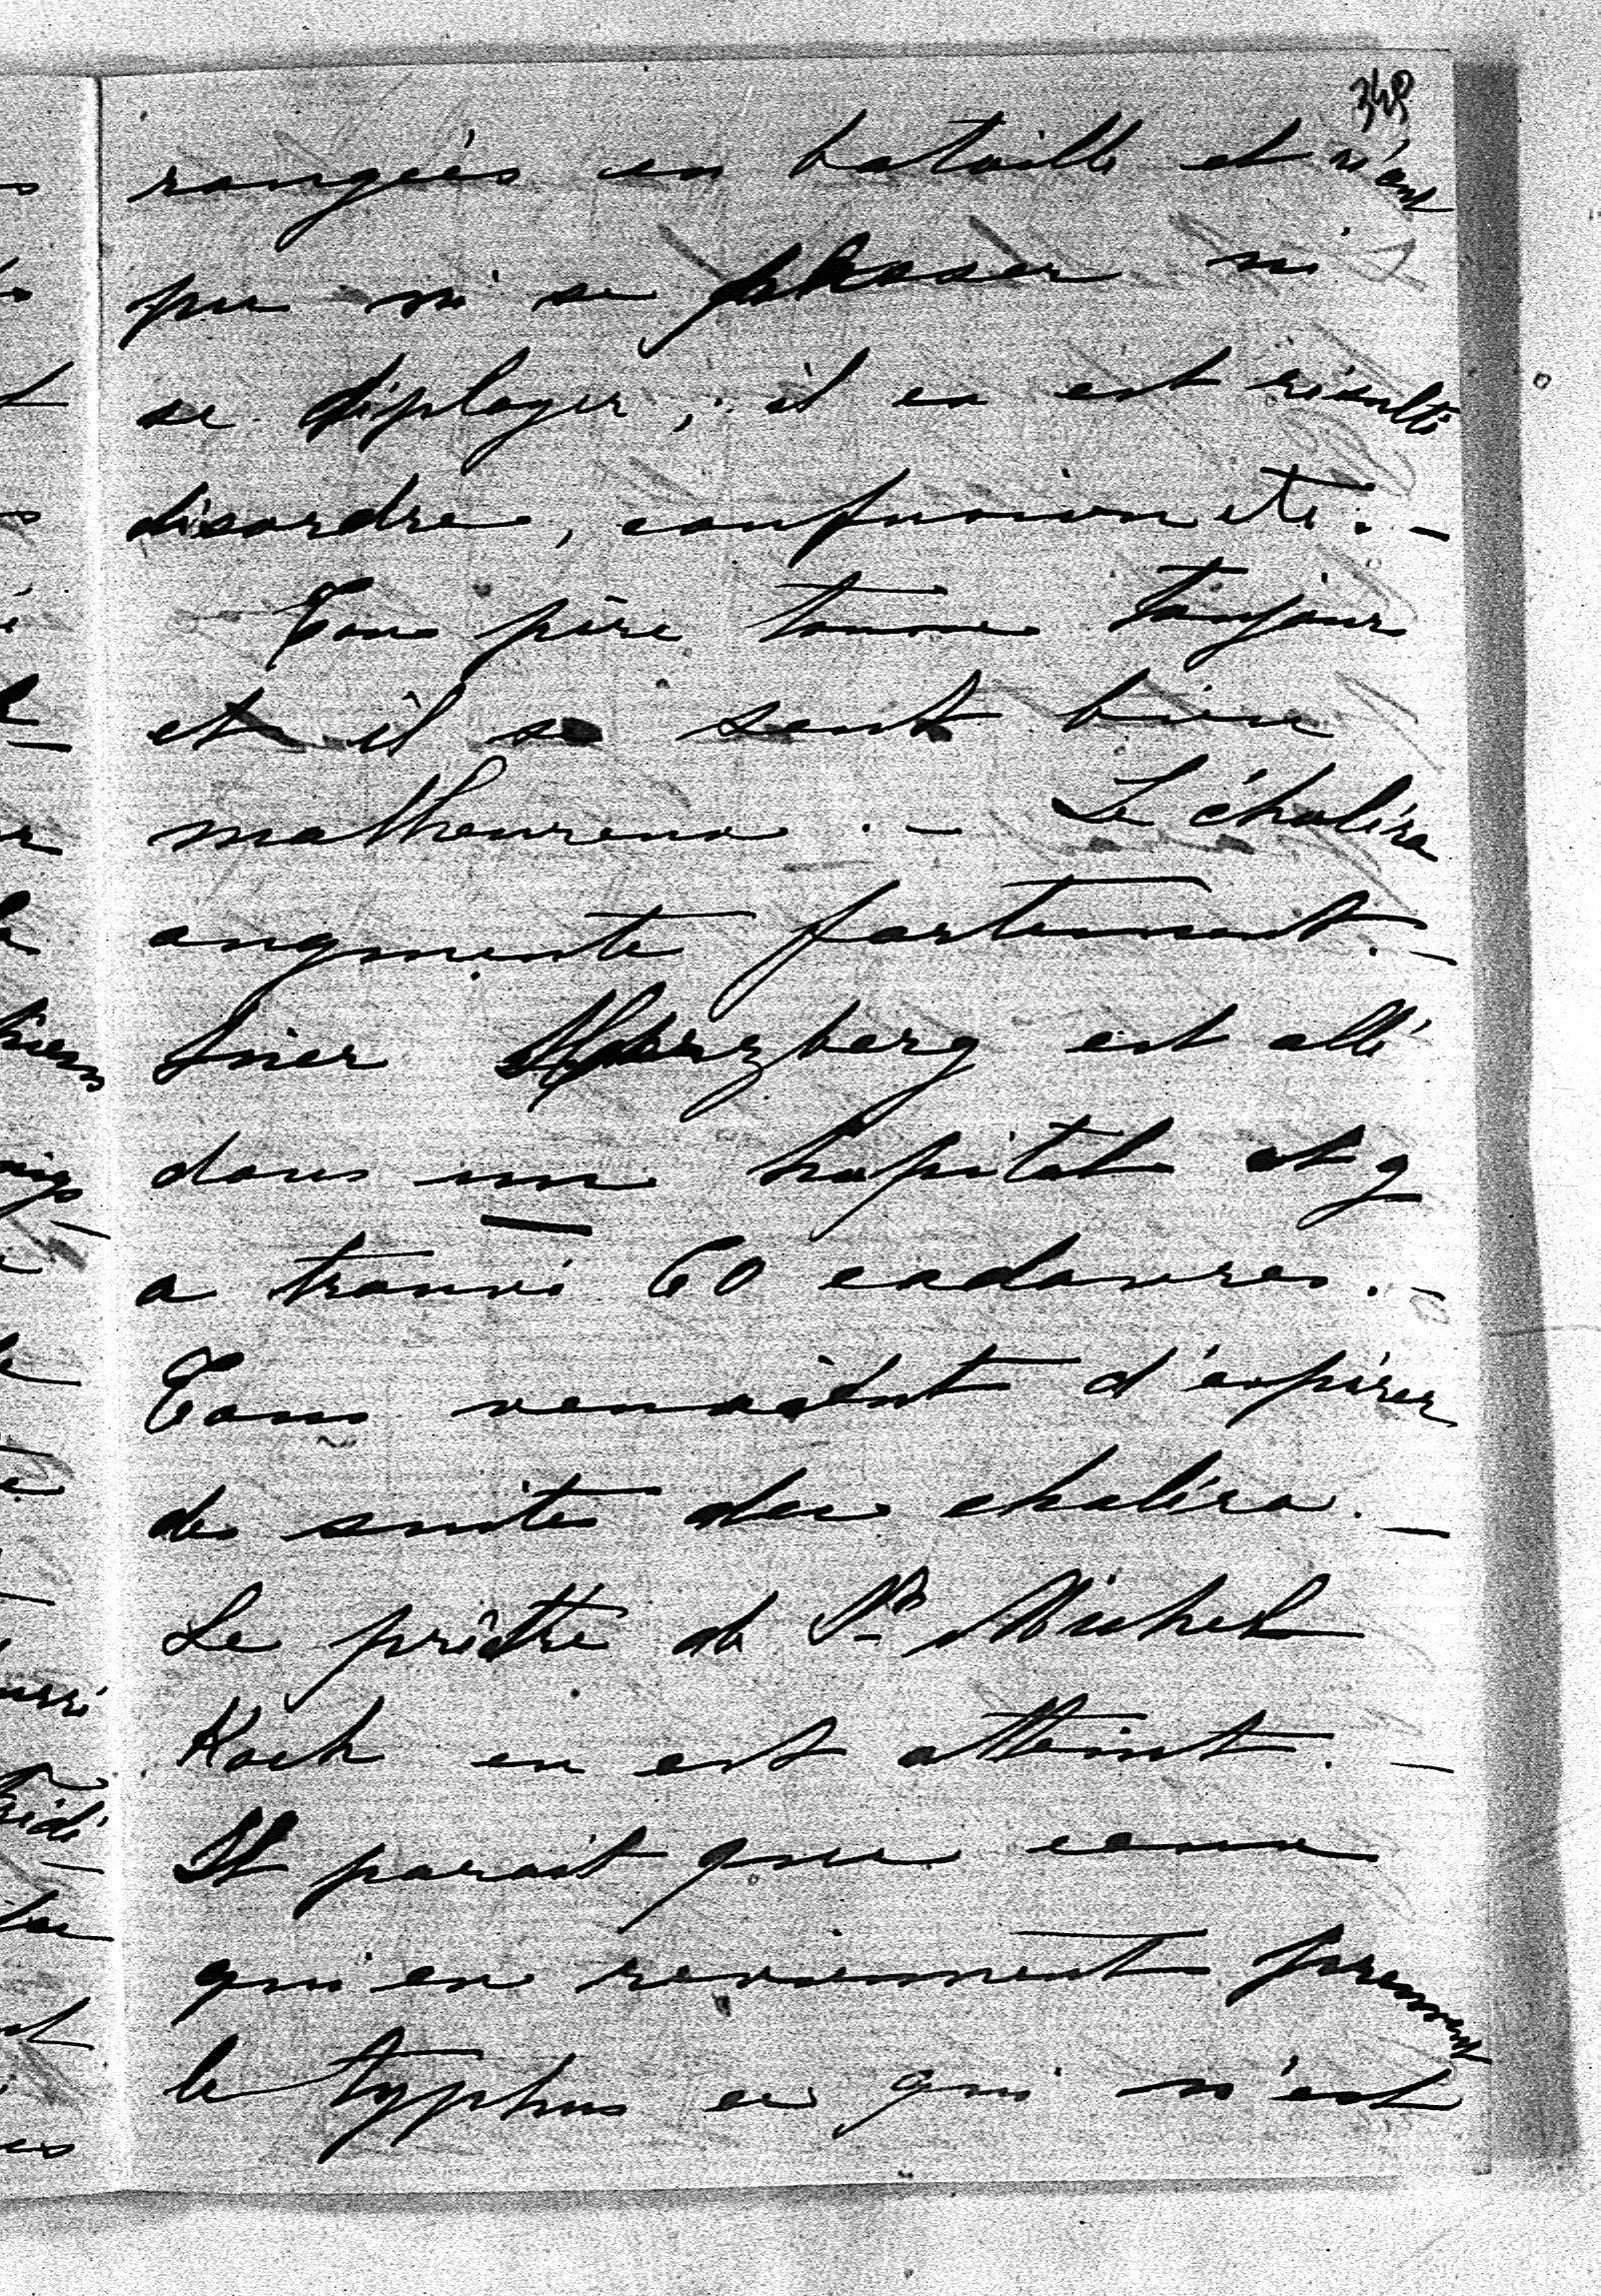 rangées en bataille et n'ont
pu ni se ni
se déployer ; il en est résulté
désordre, confusion etc. —
Ton père tousse toujours
et il se sent bien
malheureux. — Le choléra
augmente fortement. —
hier est allé
dans un hopital et y
a trouvé 60 cadavres. —
Tous venaient d'expirer
des suites du choléra. —
Le prêtre de St Michel
Koch en est atteint. —
Il parait que ceux
qui en reviennent prennent
le typhus ce qui n'est